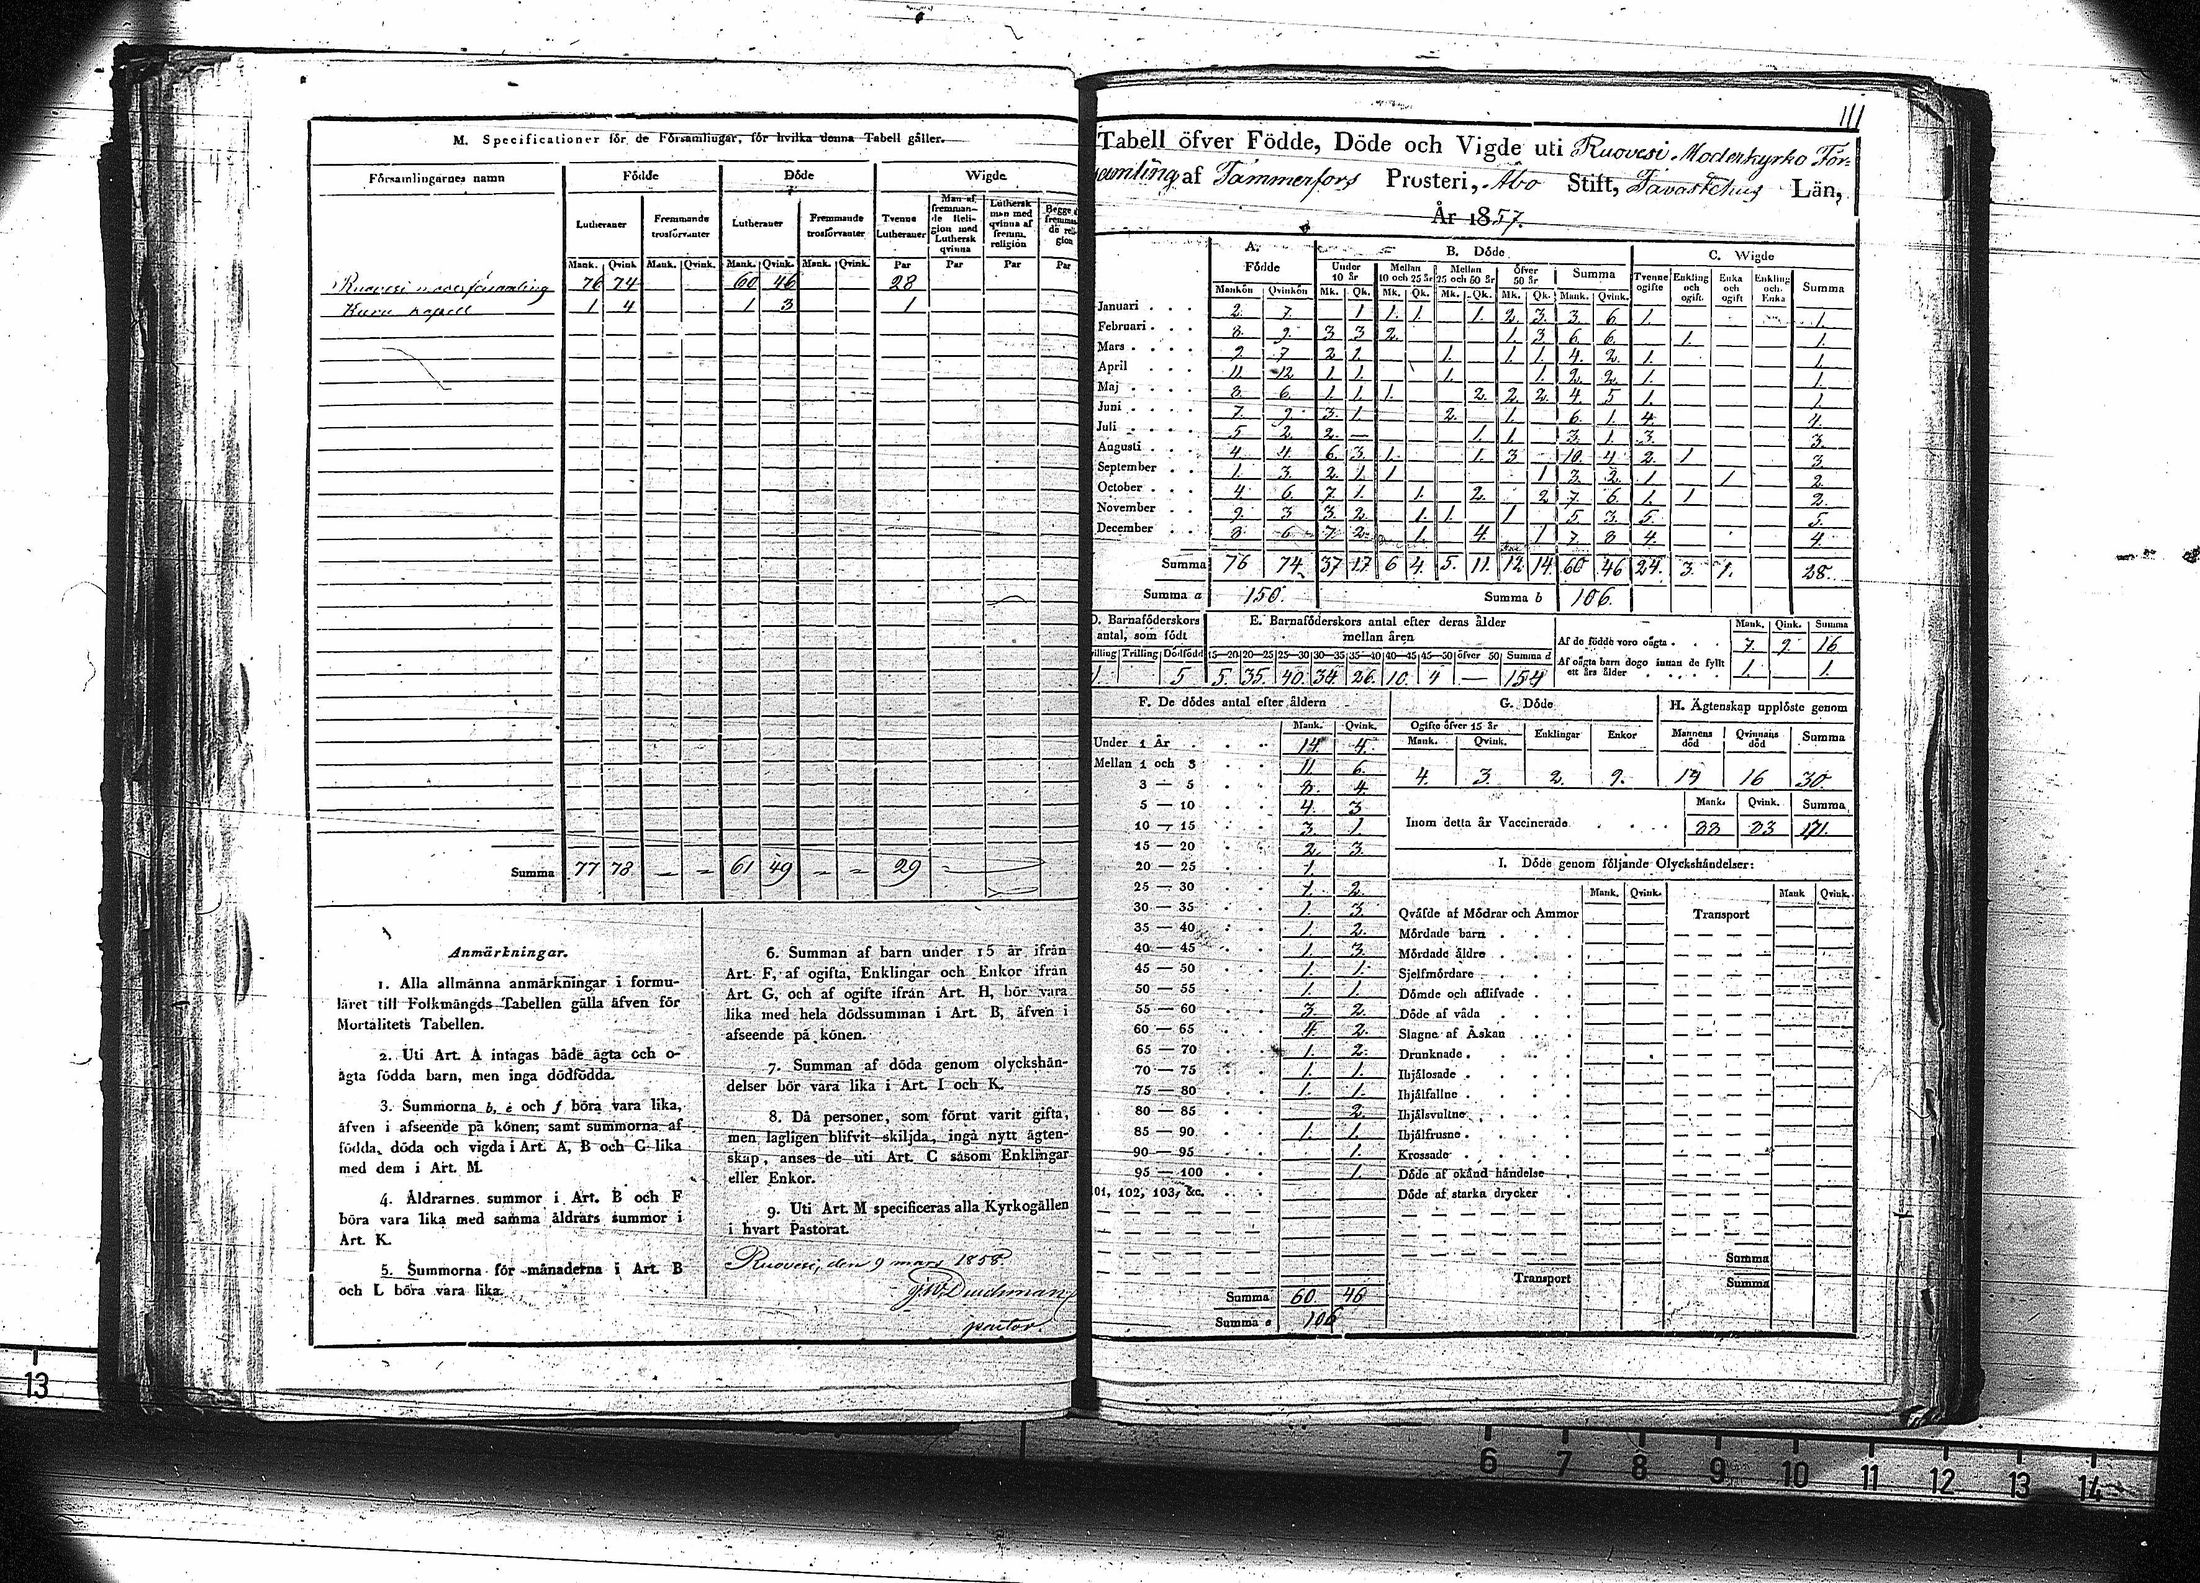 M. Specificationer för de Församlingar, för hvilka denna Tabell gäller.
Församlingarnes namn Födde Döde Wigde
Lutheraner Fremmande trosförvanter Lutheraner Fremmande trosförvanter Tvenne Lutheraner Man af fremmande Religion med Luthersk qvinna Luthersk man med qvinna af fremm. religion Begge
Mank. Qvink Mank. Qvink. Mank. Qvink. Mank. Qvink. Par Par Par Par
Ruovesi moderförsamling 76 74 60 46 28
Kuru kapell 1 4 1 3 1
Summa 77 78 — = 61 49 = = 29
Anmärkningar.
1. Alla allmänna anmärkningar i formu-
läret till Folkmängds Tabellen gälla äfven för
Mortalitets Tabellen.
2. Uti Art. A intagas både ägta och o-
ägta födda barn, men inga dödfödda.
3. Summorna b, e och f böra vara lika,
äfven i afseende på könen; samt summorna af
födda, döda och vigda i Art. A, B och C lika
med dem i Art. M.
4. Åldrarnes summor i Art. B och F
böra vara lika med samma åldrars summor i
Art. K.
5. Summorna för månaderna i Art. B
och L böra vara lika.
6. Summan af barn under 15 år ifrån
Art. F, af ogifta, Enklingar och Enkor ifrån
Art. G, och af ogifte ifrån Art. H, bör vara
lika med hela dödssumman i Art. B, äfven i
afseende på könen.
7. Summan af döda genom olyckshän-
delser bör vara lika i Art. I och K.
8. Då personer, som förut varit gifta,
men lagligen blifvit skiljda, ingå nytt ägten-
skap, anses de uti Art. C såsom Enklingar
eller Enkor.
9. Uti Art. M specificeras alla Kyrkogällen
i hvart Pastorat.
Ruovesi, den 9 mars 1858.
pastor.
111
Tabell öfver Födde, Döde och Vigde uti Ruovesi Moderkyrko För-
samling af Tammerfors Prosteri, Åbo Stift, Tavastehus Län,
År 1857.
A. Födde B. Döde C. Wigde
Under 10 år Mellan 10 och 25 år Mellan 25 och 50 år öfver 50 år Summa Tvenne ogifte Enkling och ogift. Enka och ogift Enkling och Enka Summa
Mankön Qvinkön Mk. Qk. Mk. Qk. Mk. Qk. Mk. Qk. Mank. Qvink.
Januari 2. 7. 1 1. 1. 1. 2. 3. 3. 6. 1. 1.
Februari 8. 9. 3 3 2. 1. 3 6. 6. 1. 1.
Mars 9. 7 2 1. 1. 1. 1. 4. 2. 1. 1.
April 11. 12 1. 1. 1. 1. 2. 2. 1. 1.
Maj 8. 6. 1. 1. 1. 2. 2. 2. 4. 5 1. 1.
Juni 7. 9. 3. 1. 2. 1. 6. 1. 4. 4.
Juli 5 2. 2. — 1. 1. 3. 1. 3. 3.
Augusti 4 4. 6. 3. 1. 1. 3 10. 4. 2. 1 3.
September 1. 3. 2. 1. 1 1 3. 2. 1 1 2.
October 4 6. 7. 1. 1. 2. 2 7. 6. 1. 1 2.
November 9. 3 3. 2. 1. 1. 1 5. 3. 5. 5.
December 8. 6 7. 2. 1. 4. 1 7. 8 4. 4.
Summa 76 74. 37 17. 6 4. 5. 11. 12 14. 60 46 24. 3. 1. 28.
Summa a 150. Summa b 106.
D. Barnaföderskors antal, som födt
E. Barnaföderskors antal efter deras ålder mellan åren
Mank. Qink. Summa
Trilling Dödfödd 15—20 20—25 25—30 30—35 35—40 40—45 45—50 öfver 50 Summa d
1 5 5. 35. 40. 34 26. 10. 4 — 154
Af de födde voro oägta 7. 9. 16
Af oägta barn dogo innan de fyllt ett års ålder 1. 1.
F. De dödes antal efter åldern
Mank. Qvink.
Under 1 År 14. 4.
Mellan 1 och 3 11. 6.
3 — 5 8. 4
5 — 10 4. 3
10 — 15 3. 1.
15 — 20 2. 3.
20 — 25 1.
25 — 30 1. 2.
30 — 35 1. 3.
35 — 40 1. 2.
40 — 45 1. 3.
45 — 50 1. 1.
50 — 55 1. 1.
55 — 60 3. 2.
60 — 65 4. 2.
65 — 70 1. 2.
70 — 75 1. 1.
75 — 80 1. 1.
80 — 85 2.
85 — 90 1. 1.
90 — 95 1.
95 — 100 1.
101, 102, 103, &c.
Summa 60 46
Summa e 106
G. Döde
Ogifte öfver 15 år Enklingar Enkor
Mank. Qvink.
4. 3. 2. 9.
H. Ägtenskap upplöste genom
Mannens död Qvinnans död Summa
16 30.
Mank. Qvink. Summa
Inom detta år Vaccinerade 88 83 171.
I. Döde genom följande Olyckshändelser:
Mank. Qvink. Mank Qvink.
Qväfde af Mödrar och Ammor Transport
Mördade barn
Mördade äldre
Sjelfmördare
Dömde och aflifvade
Döde af våda
Slagne af Åskan
Drunknade
Ihjälosade
Ihjälfallne
Ihjälsvultne
Ihjälfrusne
Krossade
Döde af okänd händelse
Döde af starka drycker
Summa
Transport Summa
13
6 7 8 9 10 11 12 13 14